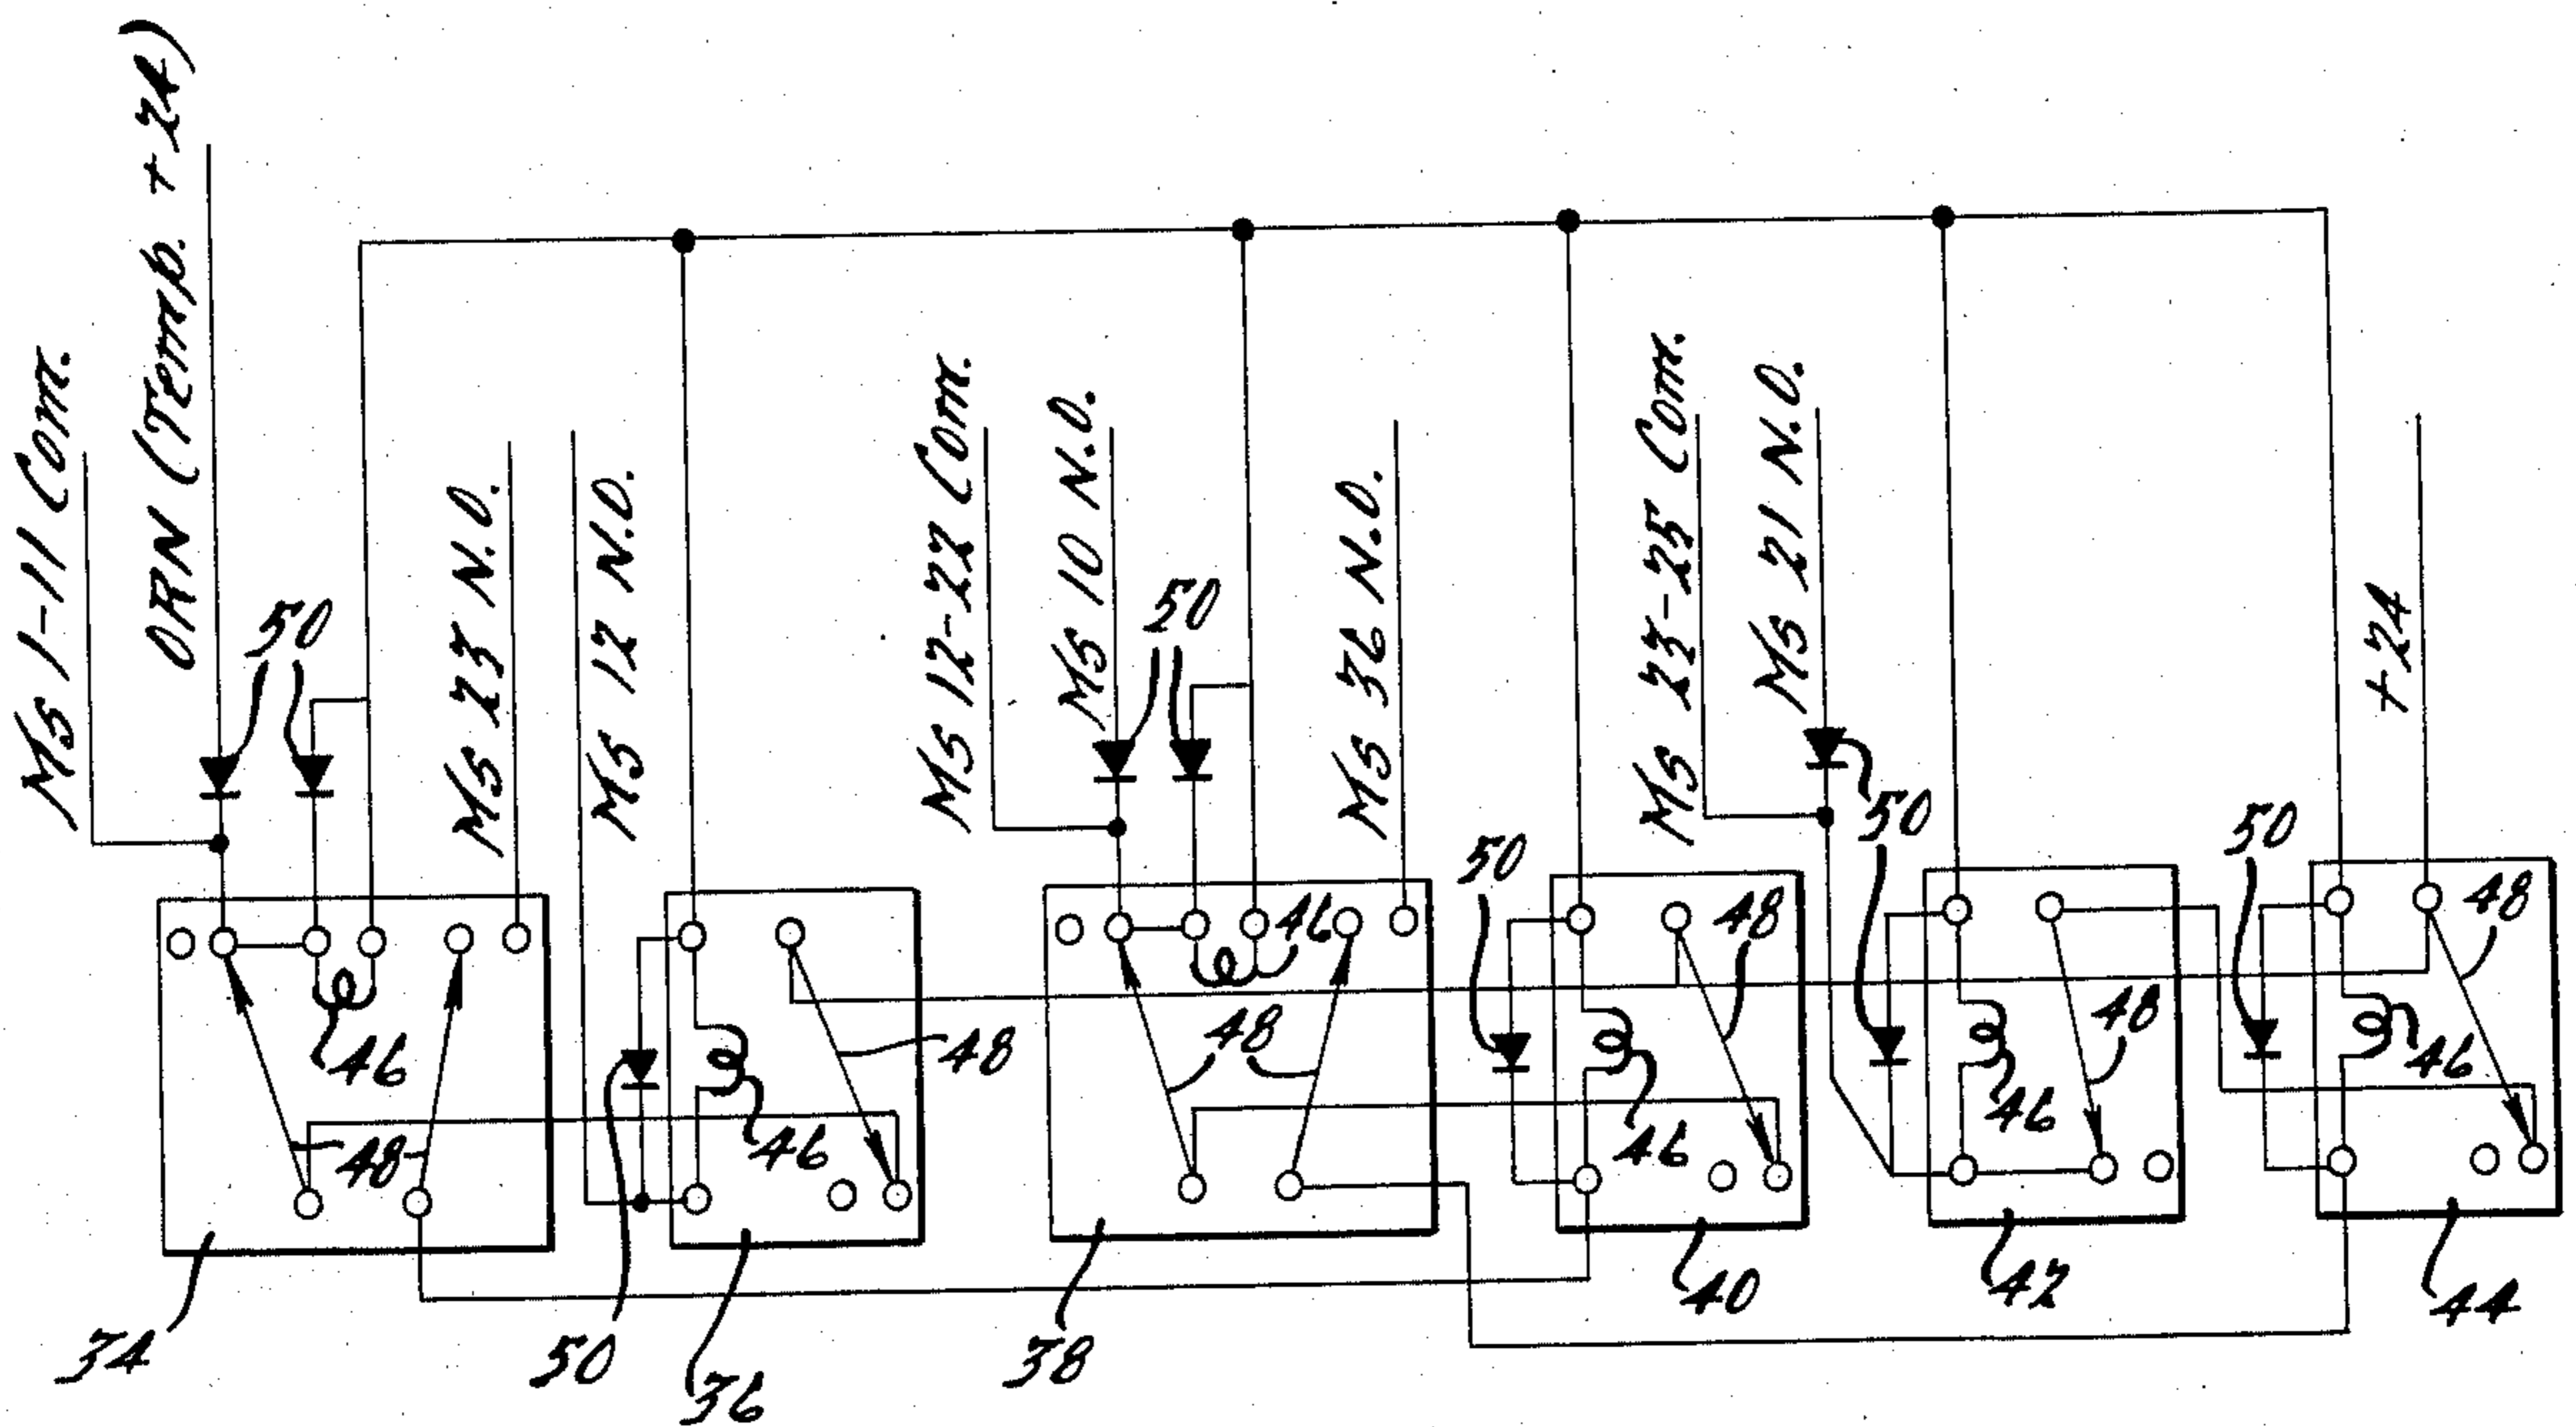 Ms 1-11 Com.
ORN (Temp. +24)
50
Ms 23 N.O.
Ms 12 N.O.
Ms 12-22 Com.
Ms 10 N.O.
50
Ms 36 N.O.
Ms 23-25 Com.
Ms 21 N.O.
+24
50
50
50
46
48
48
46
48
48
46
48
50
46
48
46
48
46
50
34
36
38
40
42
44